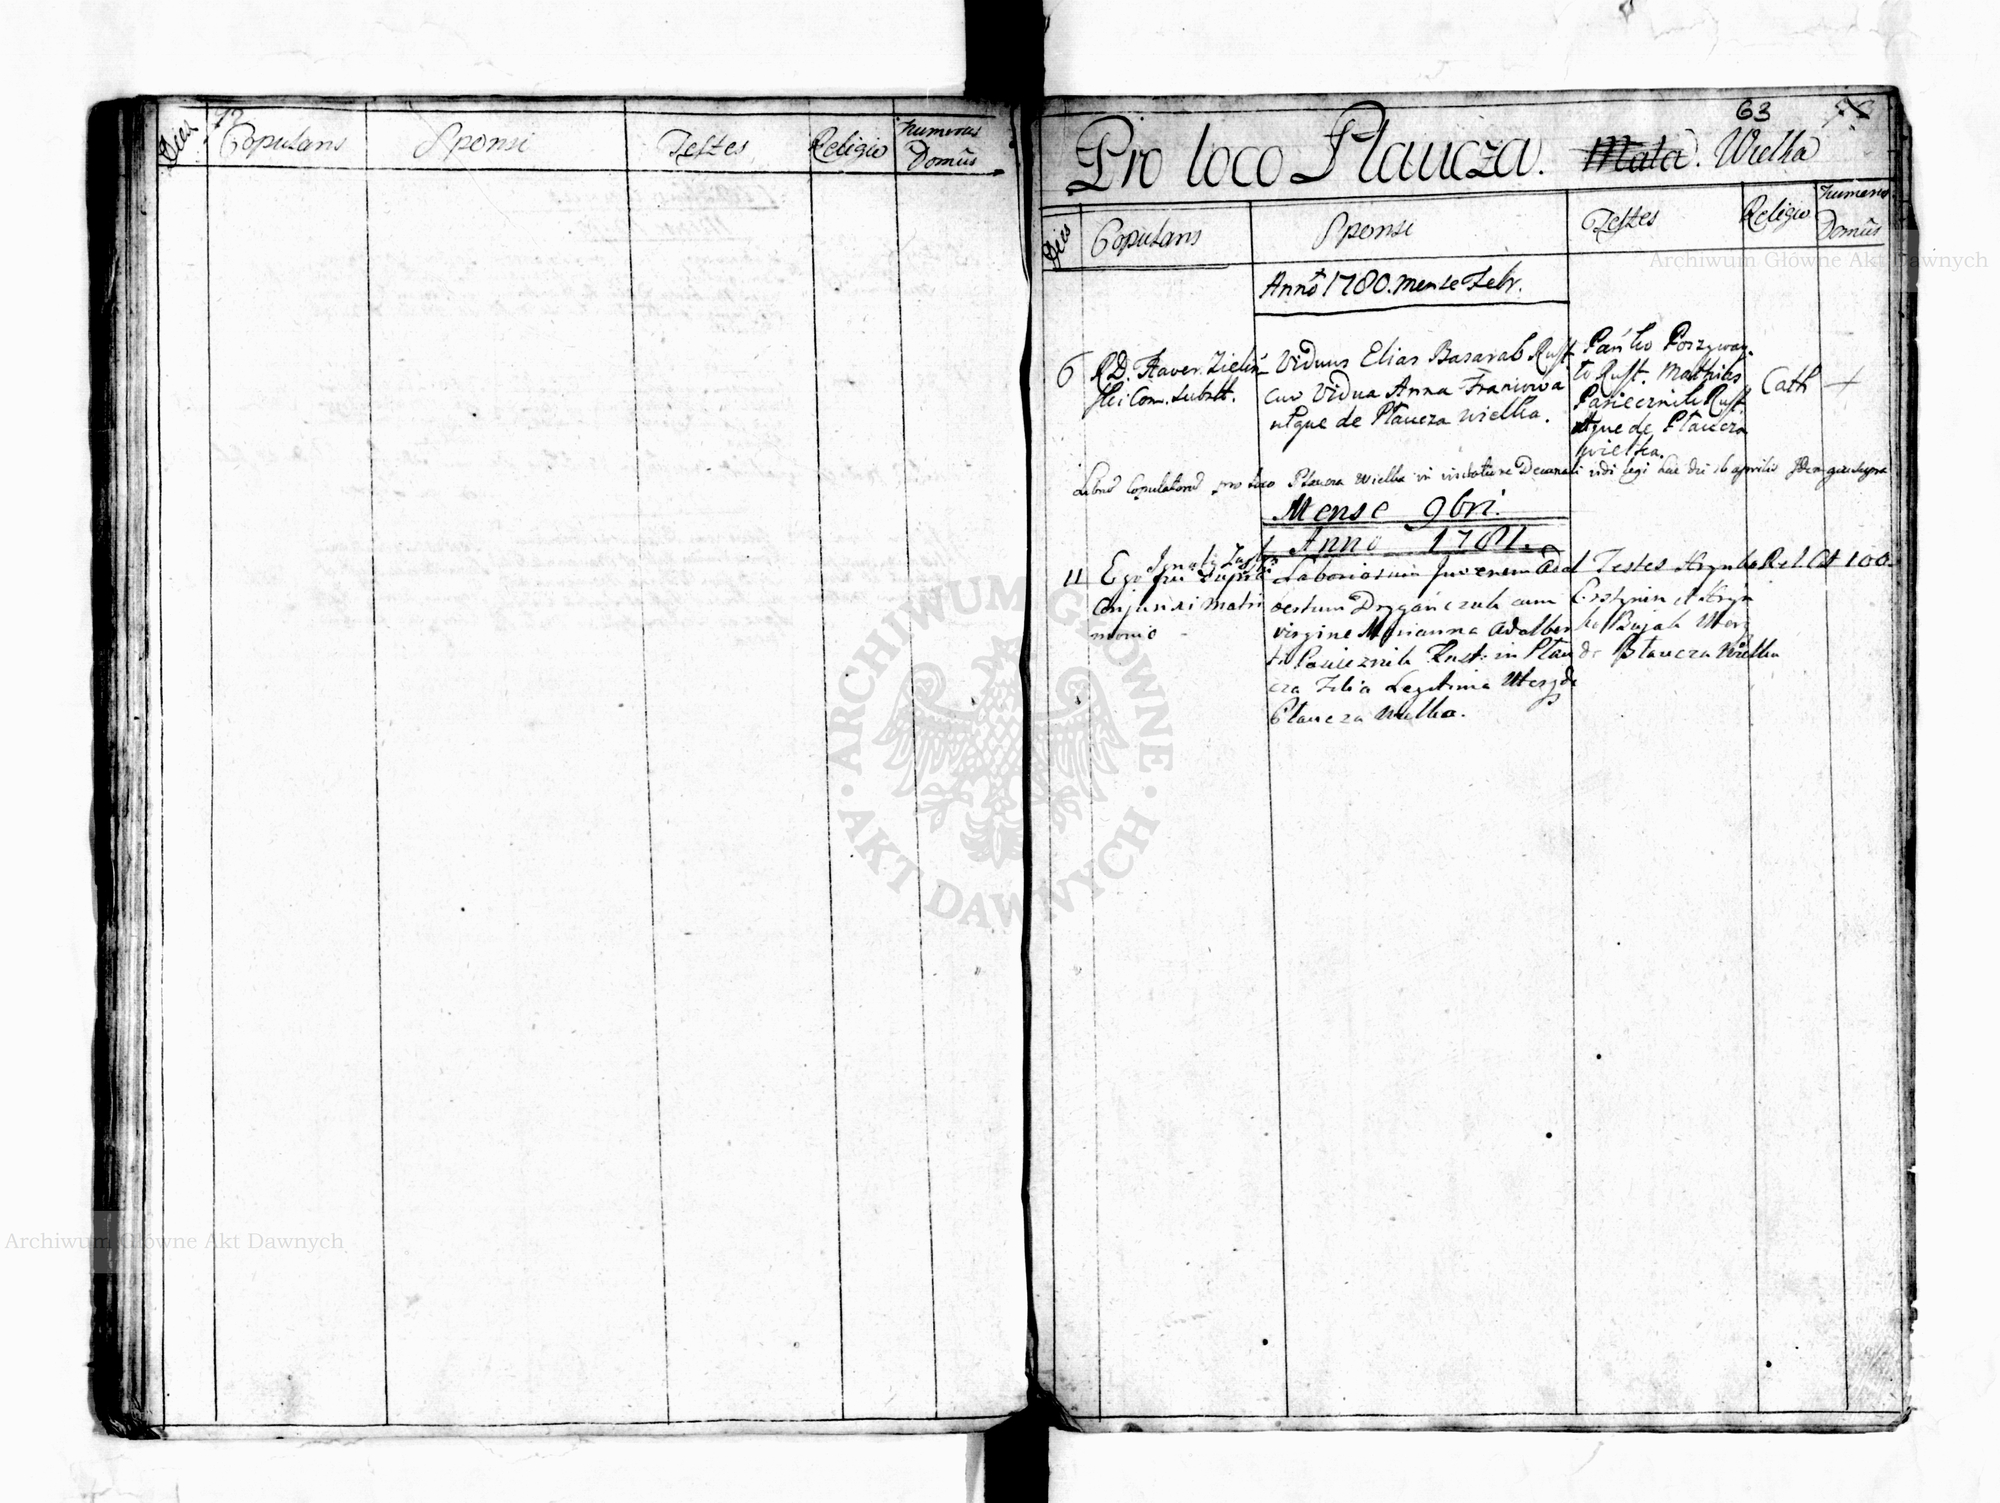 72
Dies
Copulans
Sponsi
Testes
Religio
Numerus
Domus
63
Pro loco Plaucza. Mała. Wielka
Dies
Copulans
Sponsi
Testes
Religio
Numerus
Domus
Anno 1780. mense Febr.
6
R.D. Xaver. Zieliń-
ski Com. Substt.
Viduus Elias Basarab Rust.
cus Vidua Anna
utque de Plaucza wielka.
Pańko
to Rust. Mathias
Pasiecznik Rust.
utque de Plaucza
wielka.
Cath
+
pro loco Plaucza Wielka in visitatione Decanali vidi legi 16 aprilis
Mense 9bri.
Anno 1781.
11
Ego
Conjunxi matri
monio
Laboriosum Juvenem Adal
bertum cum
virgine Marianna Adalber
ti Pasieznik Rust: in Plau
cza Filia Legitima Uterq de
Plaucza Wielka.
Testes Hrynko
et Hryn
ko Bujak Uterq
de Plaucza Wielka
Rel. Ct
100.
ARCHIWUM GŁÓWNE
AKT DAWNYCH
Archiwum Główne Akt Dawnych
Archiwum Główne Akt Dawnych